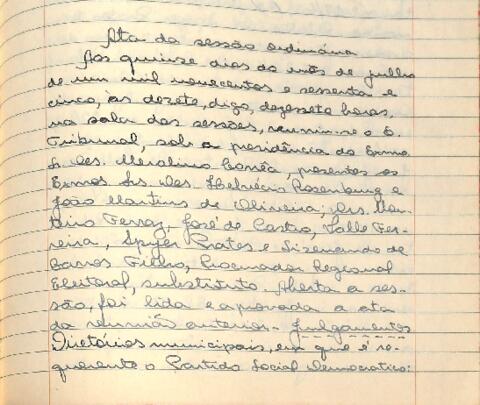 Ata da sessão ordinária
Aos quinze dias do mês de julho
de um mil novecentos e sessenta e
cinco, às dezete, digo, dezessete horas,
na sala das sessões, reuniu-se o E.
Tribunal, sob a presidência do Exmo
Sr. Des. Merolino Corrêa, presentes os
Exmos Srs. Des. Helvécio Rosenburg e
João Martins de Oliveira, Drs. Mon-
teiro Ferraz, José de Castro, Valle Fer-
reira, Spyer Prates e Sizenando de
Barros Filho, Procurador Regional
Eleitoral, substituto. Aberta a ses-
são, foi lida e aprovada a ata
da reunião anterior. Julgamentos
Diretórios municipais, em que é re-
querente o Partido Social Democratico: